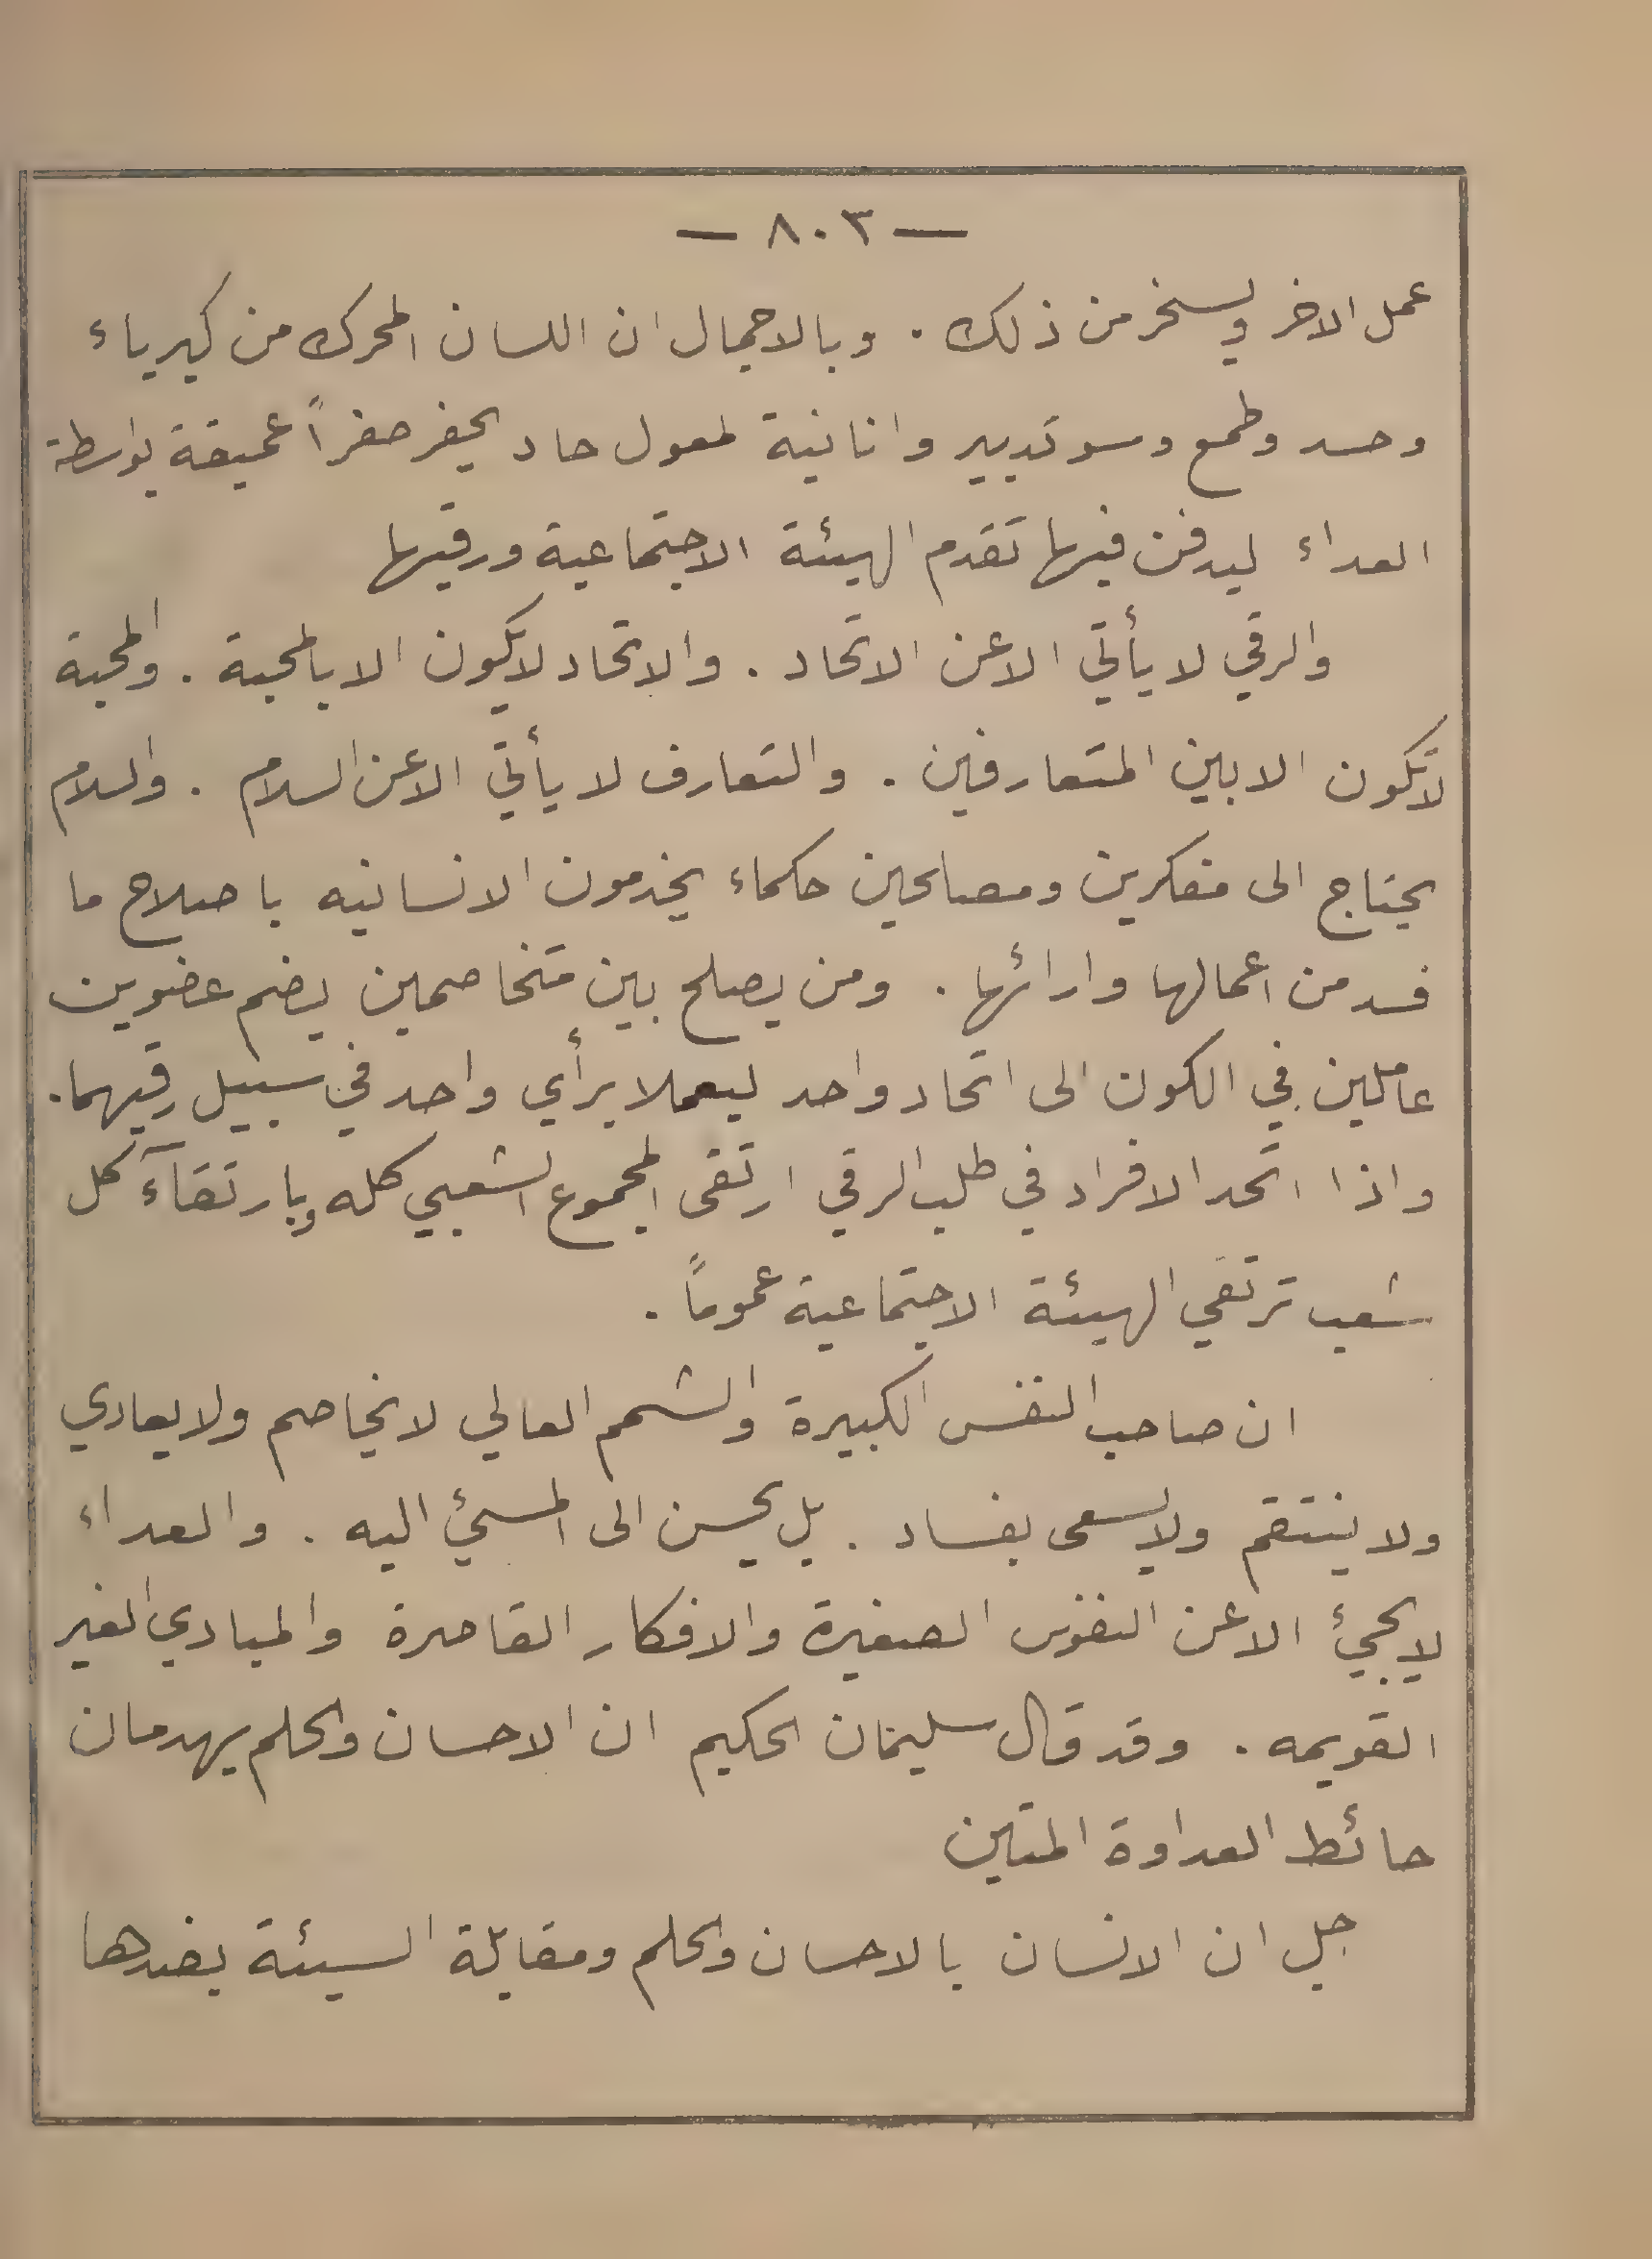 — ٨٠٣ —
عمل الاخر ويسخر من ذلك . وبالاجمال ان اللسان المحرك من كبرياء
وحسد وطمع وسو تدبير وانانية لمعول حاد يحفر حفراً عميقة بواسطة
العداء ليدفن فيها تقدم الهيئة الاجتماعية ورقيها
والرقي لا يأتي الا عن الاتحاد . والاتحاد لا يكون الا بالمحبة . والمحبة
لا تكون الا بين المتعارفين . والتعارف لا يأتي الا عن السلام . والسلام
يحتاج الى مفكرين ومصالحين حكماء يخدمون الانسانيه باصلاح ما
فسد من اعمالها وارائها . ومن يصلح بين متخاصمين يضم عضوين
عاملين في الكون الى اتحاد واحد ليعملا برأي واحد في سبيل رقيهما .
واذا اتحد الافراد في طلب الرقي ارتقى المجموع الشعبي كله وبارتقآء كل
شعب ترتقي الهيئة الاجتماعية عموماً .
ان صاحب النفس الكبيرة والشمم العالي لا يخاصم ولا يعادي
ولا ينتقم ولا يسعى بفساد . بل يحسن الى المسيئ اليه . والعداء
لا يجيئ الا عن النفوس الصغيرة والافكار القاصرة والمبادي الغير
القويمه . وقد قال سليمان الحكيم ان الاحسان والحلم يهدمان
حائط العداوة المتين
جل ان الانسان بالاحسان والحلم ومقابلة السيئة بضدها